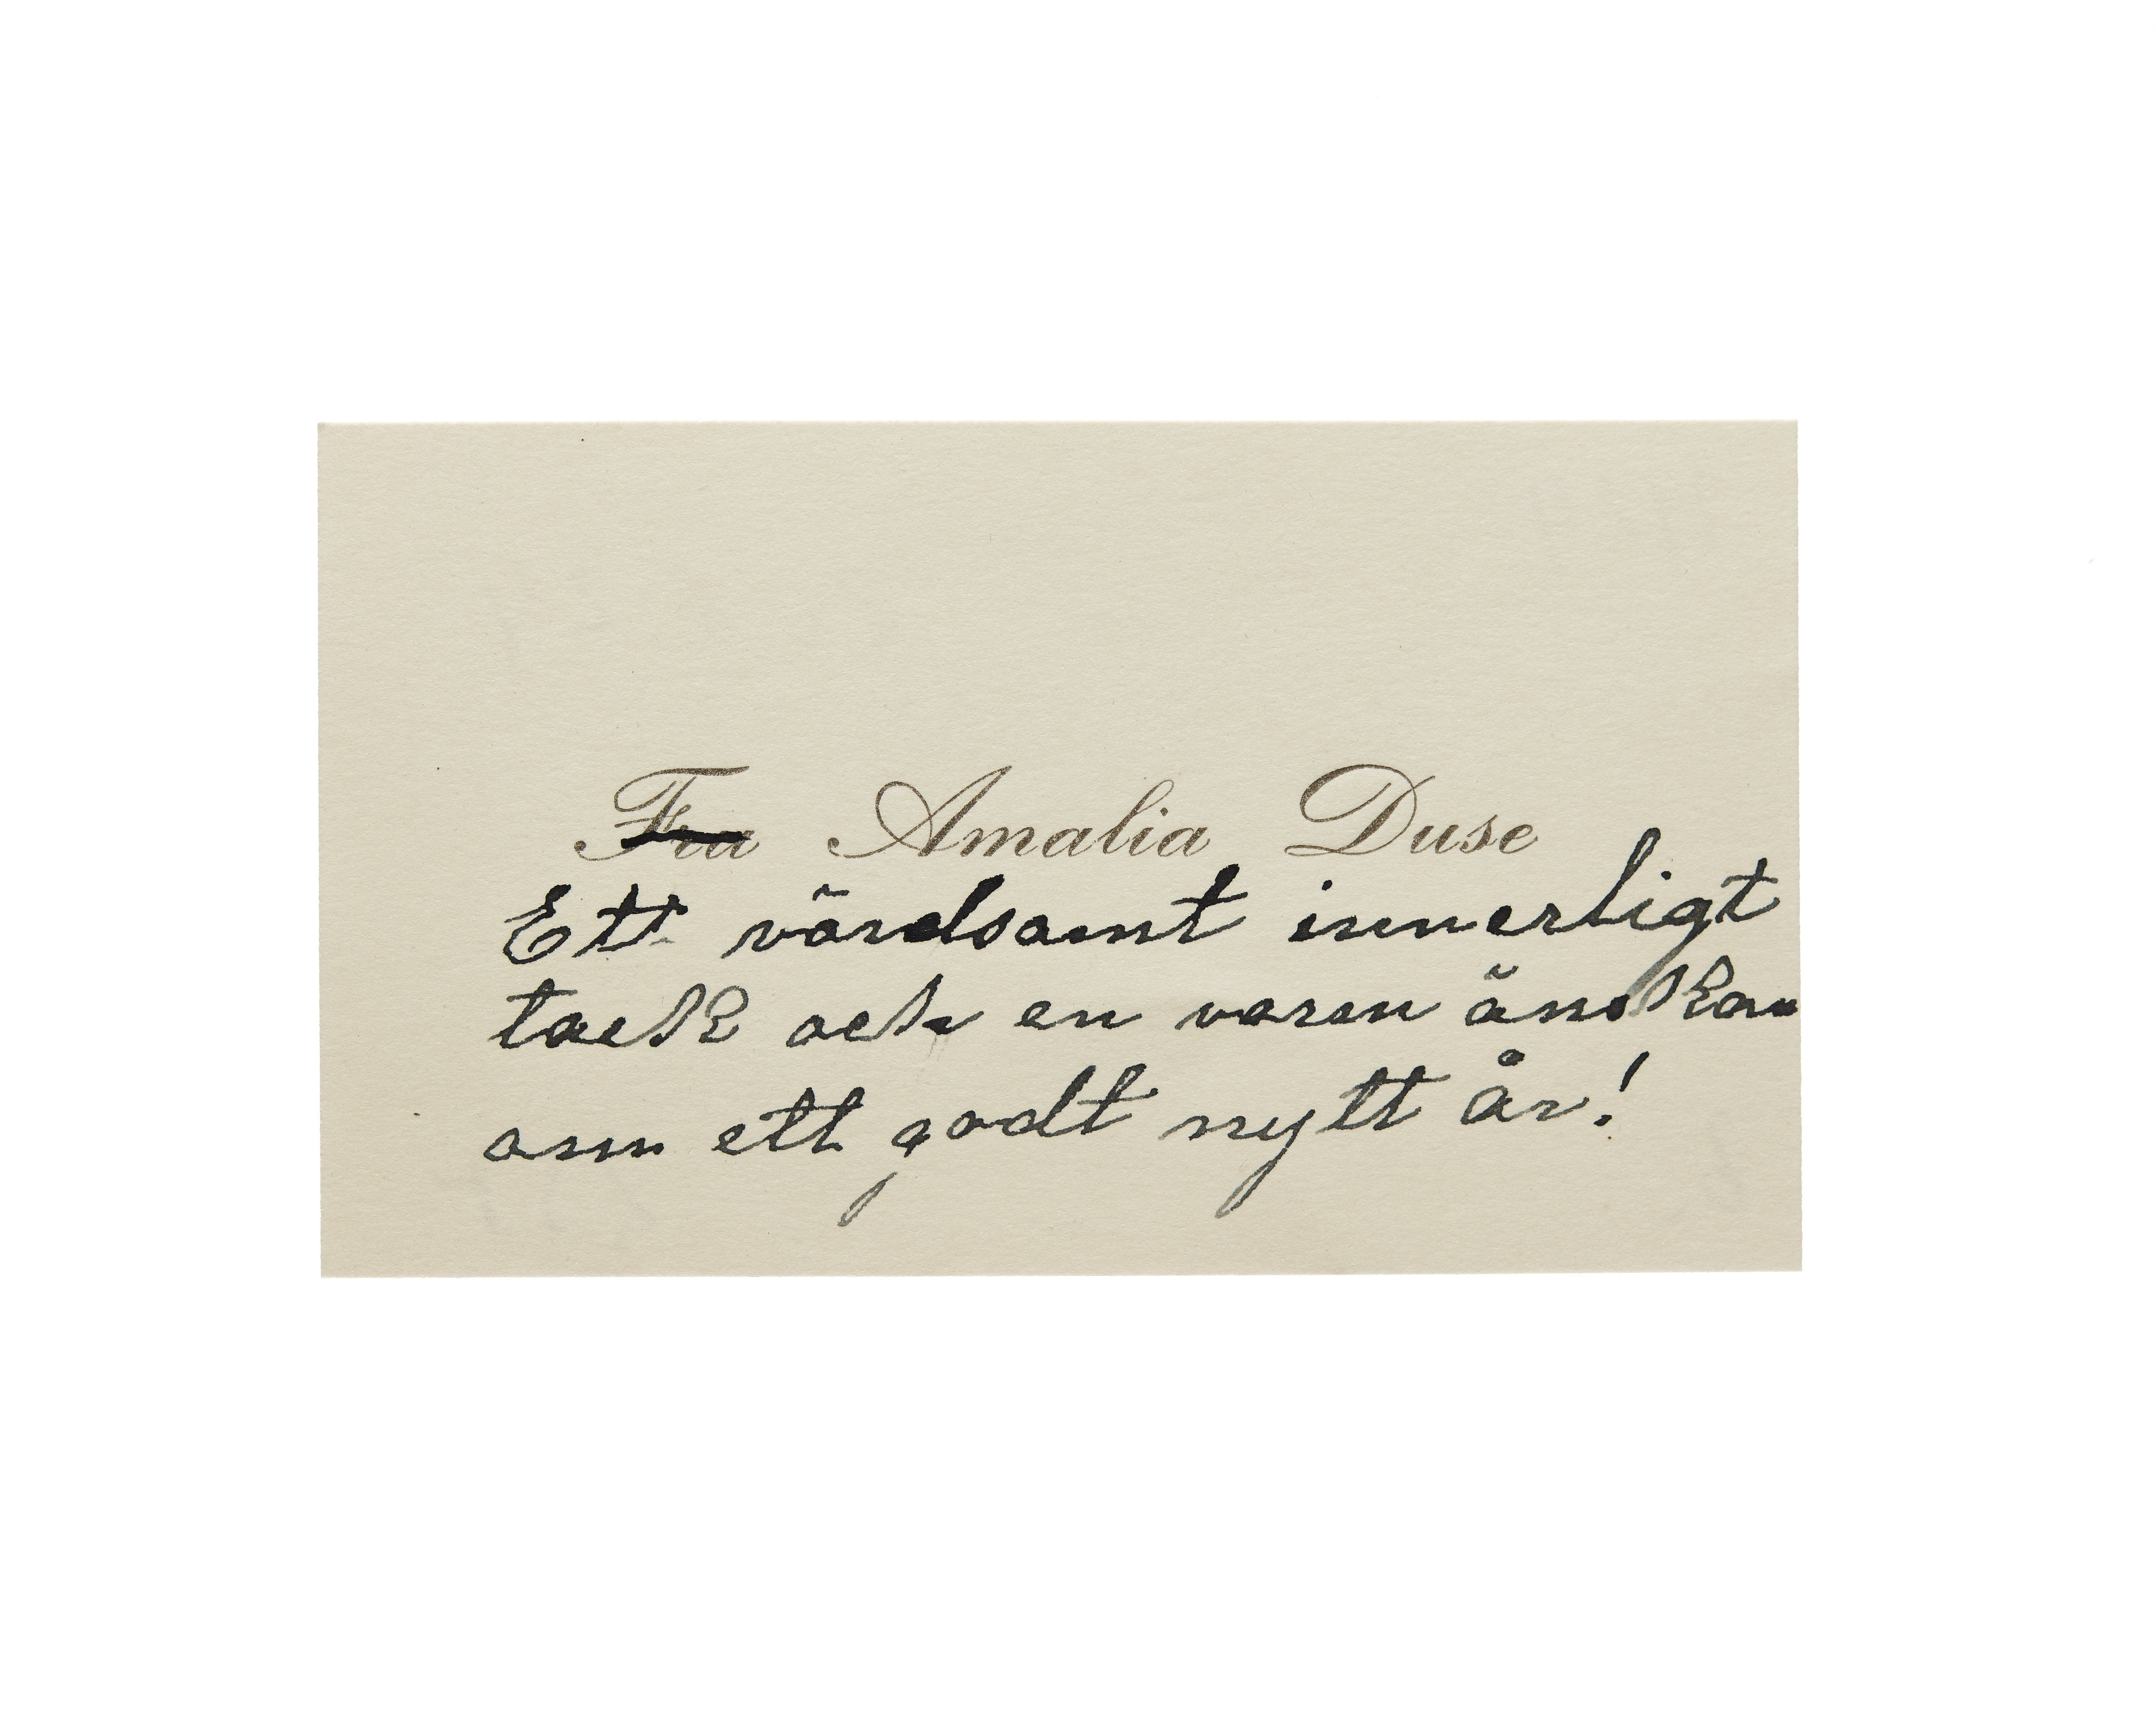 Fru Amalia Duse
Ett värdsamt innerligt
tack och en varm önskan
om ett godt nytt år!